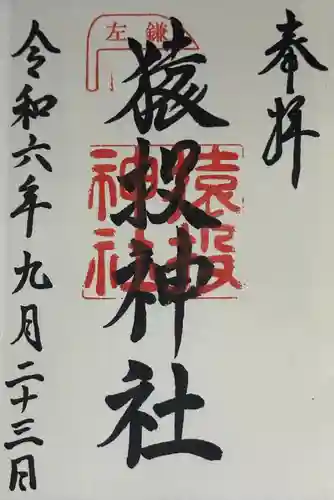 奉拝
左鎌
猿投神社
猿投神社
令和六年九月二十三日